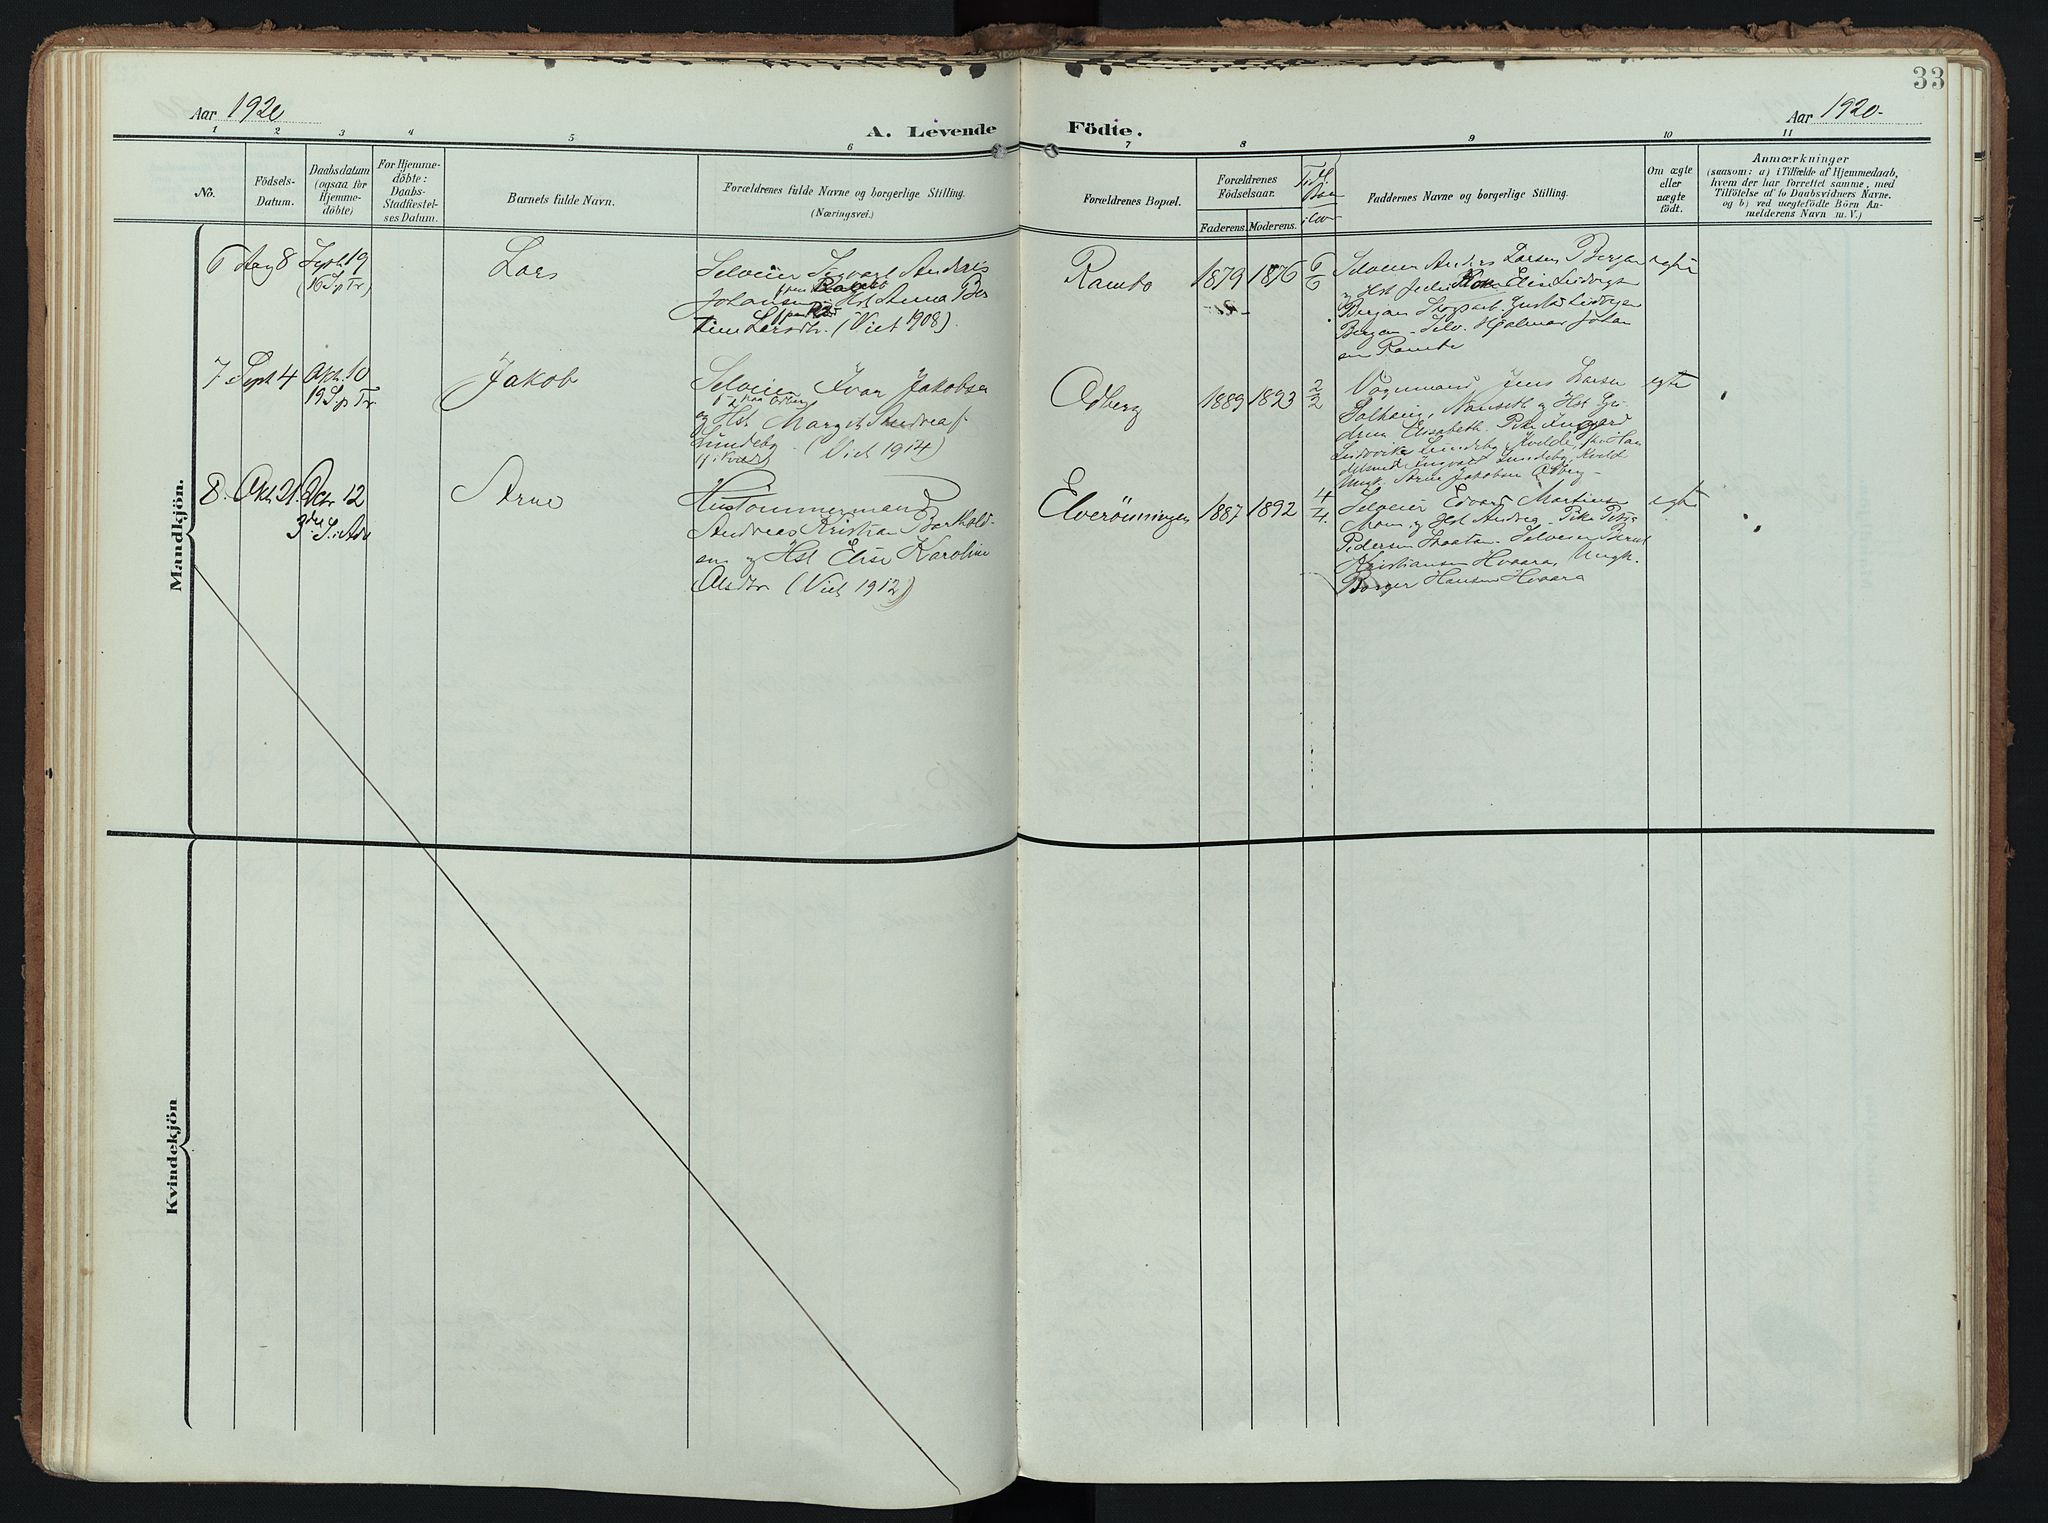 33
Aar 1920
A. Levende Födte.
Aar 1920.
1 2 3 4 5 6 7 8 9 10 11
No.
Födsels-
Datum.
Daabsdatum
(ogsaa for
Hjemme-
döbte)
For Hjemme-
döbte:
Daabs-
Stadfæstel-
ses Datum.
Barnets fulde Navn.
Forældrenes fulde Navne og borgerlige Stilling.
(Næringsvei.)
Forældrenes Bopæl.
Forældrenes
Födselsaar.
Faderens. Moderens.
Faddernes Navne og borgerlige Stilling.
Om ægte
eller
uægte
födt.
Anmærkninger
(saasom: a) i Tilfælde af Hjemmedaab,
hvem der har forrettet samme, med
Tilföielse af to Daabsvidners Navne.
og b) ved uægtefödte Börn An-
melderens Navn m. V.)
Mandkjön.
6 Aug 8 Sept. 19
(16 S p Tr)
Lars
Selveier Sigvart Andreas
Johansen Hst Anna
Larsdtr. (Viet 1908).
Rambo
1879 1876
6
6
Selveier Anders Larsen Berjan
Hst Elise Ludvigsen
Berjan
Berjan Selv. Hjalmar Johan
sen Rambo
ægte
7 Sept 4 Okt. 10
19 S p Tr
Jakob
Selveier Ivar Jakobsen
og Hst Margit Andrea f
Lundeby (Viet 1914)
Odberg
1889 1893
2
2
Vognmand Jens Larsen
Solhaug, Nanseth og Hst
Elisabeth. Pike Ingerd
Ludvikke Lundeby Kvelde, Han
delsmd Ingvald Lundeby Kveld
Ungk. Jakobsen Odberg
egte
8. Okt 21. Dcbr 12
3de S. i Adv
Arne
Hustömmermand
Andreas Kristian Berthold-
sen og Hst Elise Karoline
Olsdtr (Viet 1912)
Elverönningen
1887 1892
4
4.
Selveier Edvard Martinsen
Moen og Hst Andrea. Pike
Pedersen Selveier Bernt
Kristiansen Hvaara, Ungk.
Borger Hansen Hvaara
egte
Kvindekjön